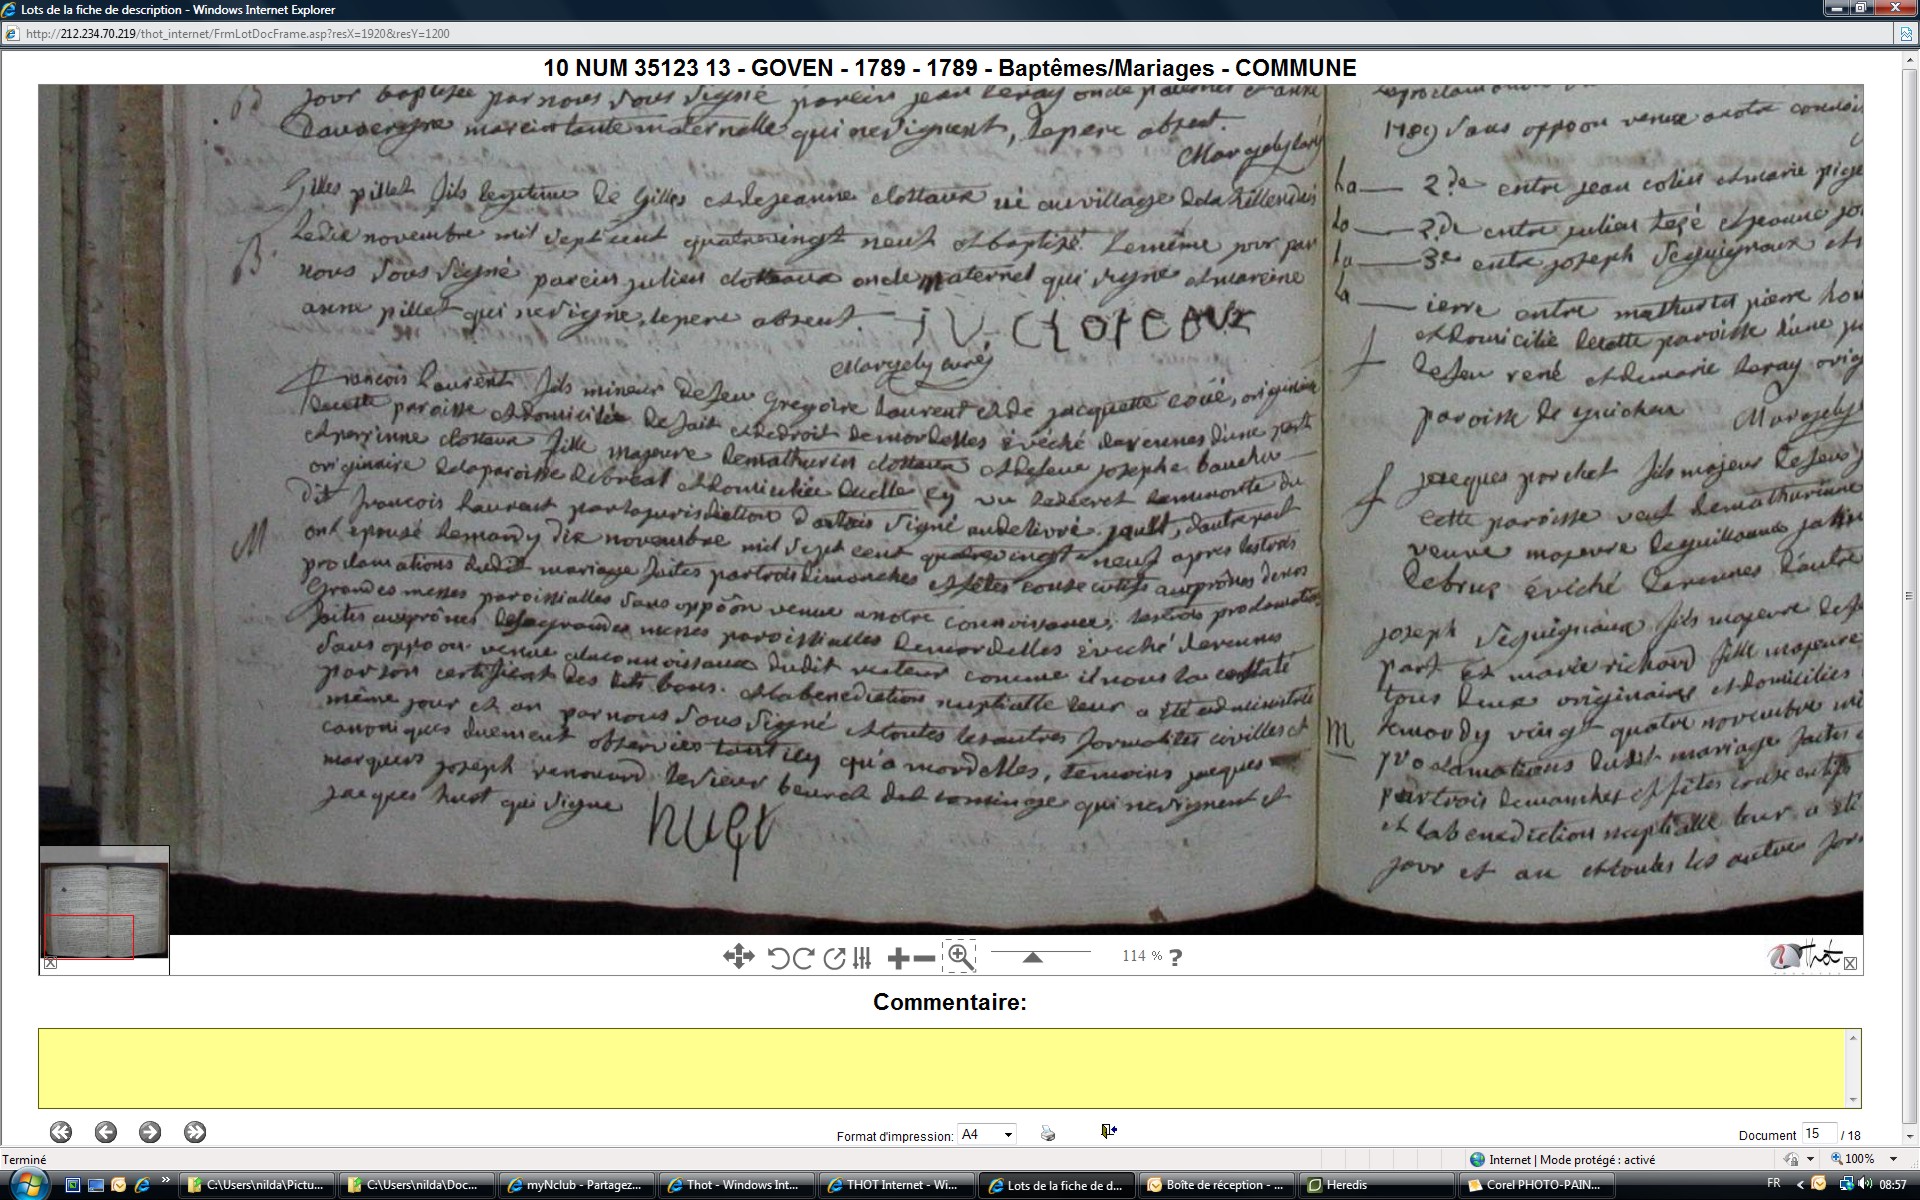 Lots de la fiche de description - Windows Internet Explorer
http://212.234.70.219/thot_internet/FrmLotDocFrame.asp?resX=1920&resY=1200
10 NUM 35123 13 - GOVEN - 1789 - 1789 - Baptêmes/Mariages - COMMUNE
jour baptisée par nous sous signé parein jean leray oncle paternel et anne
dauvergne mareine tante maternelle qui ne signent, le pere absent.
Margely curé
Gilles pillet fils legitime de Gilles et de jeanne clottaux né au village de la
B.
le dix novembre mil sept cent quatrevingt neuf et baptizé le même jour par
nous sous signé parein julien clotteaux oncle maternel qui signe et mareine
anne pillet qui ne signe, le pere absent.
Margely curé
françois laurent fils mineur de feu Gregoire laurent et de jacquette coüé, originaire
de cette paroisse et domicilié de fait et de droit de mordelles évêché de rennes d'une part
et perrinne clottaux fille majeure de mathurin clottaux et de feue josephe boucher
originaire de la paroisse de breal et domiciliée de celle cy vu le décret de minorité du
dit françois laurent par la jurisdiction d'artois signé au delivré jault, d'autre part
M
ont épousé le mardy dix novembre mil sept cent quatrevingt neuf apres les trois
proclamations dudit mariage faites par trois dimanches et fêtes consecutifs aux prônes de nos
Grandes messes paroissialles sans oppôôn venue a notre connoissance, les trois proclamations
faites aux prônes des grandes messes paroissialles de mordelles évêché de rennes
sans oppoon venue a la connoissance dudit recteur comme il nous l'a constaté
par son certificat des dits bans. et la benediction nuptialle leur a été administrée
même jour et an par nous sous signé et toutes les autres formalités civilles et
canoniques duement observées tant icy qu'a mordelles, temoins jacques
marquers joseph renouard le sieur qui ne signent et
jacques huet qui signe
huet
1789 sans oppoon venue a notre connoi
La 2.de entre jean colin et marie pige
La 2.de entre julien tezé et jeanne jo
La 3.e entre joseph seguignaux et
La 1ere entre mathurin pierre hou
et domicilié de cette paroisse d'une p
de feu rené et de marie leray orig
paroisse de guichen Margely
jacques porchet fils majeur de feu j
cette paroisse veuf de mathurinne
veuve majeure de guillaume
de bruz évêché de rennes d'autre
joseph seguignaux fils majeur de f
part et marie richard fille majeure
tous deux originaires et domiciliés
m
le mardy vingt quatre novembre mi
proclamations dudit mariage faites
par trois dimanches et fêtes consecutifs
et la benediction nuptialle leur a été
jour et an et toutes les autres for
114 % ?
Thot
Commentaire:
Format d'impression: A4
Document 15 / 18
Terminé
Internet | Mode protégé : activé
100%
C:\Users\nilda\Pictu...
C:\Users\nilda\Doc...
myNclub - Partagez...
Thot - Windows Int...
THOT Internet - Wi...
Lots de la fiche de d...
Boîte de réception - ...
Heredis
Corel PHOTO-PAIN...
FR
08:57